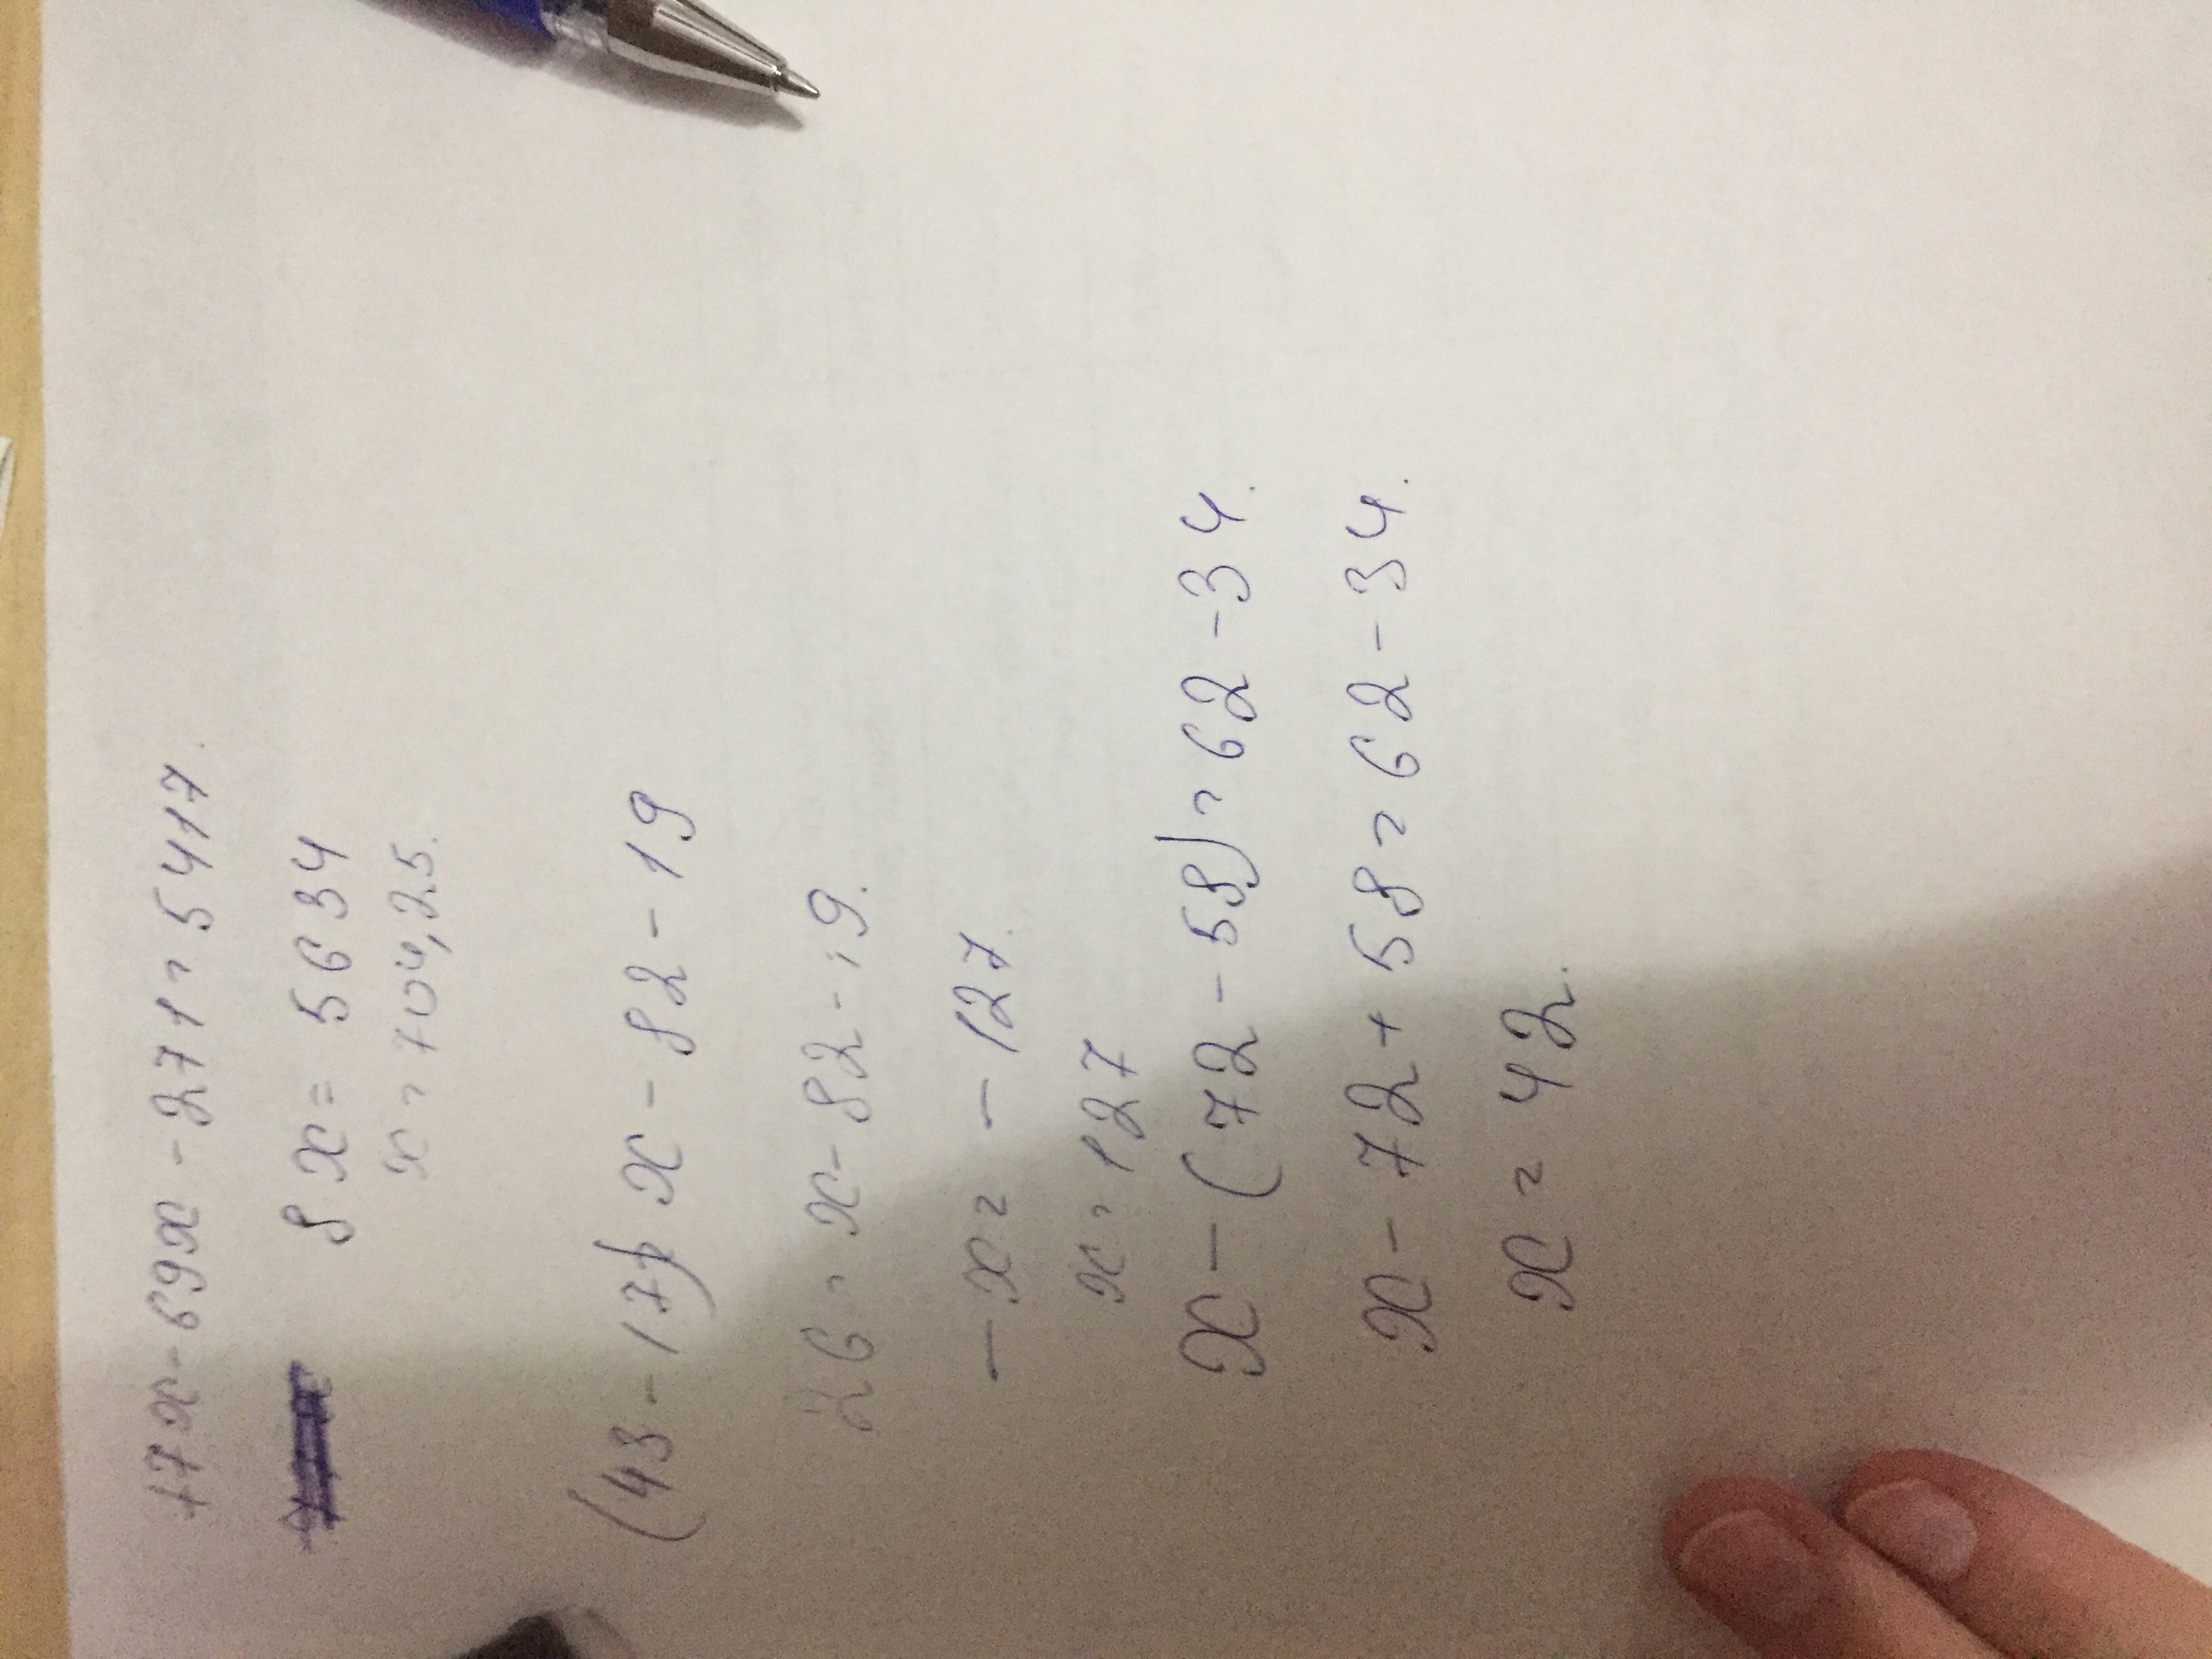 77x-69x-271=5417.
8x=5634
x=704,25.
(43-17) x-82-19
26=x-82-19.
-x=-127.
x=127
x-(72-58)=62-34.
x-72+58=62-34.
x=42.